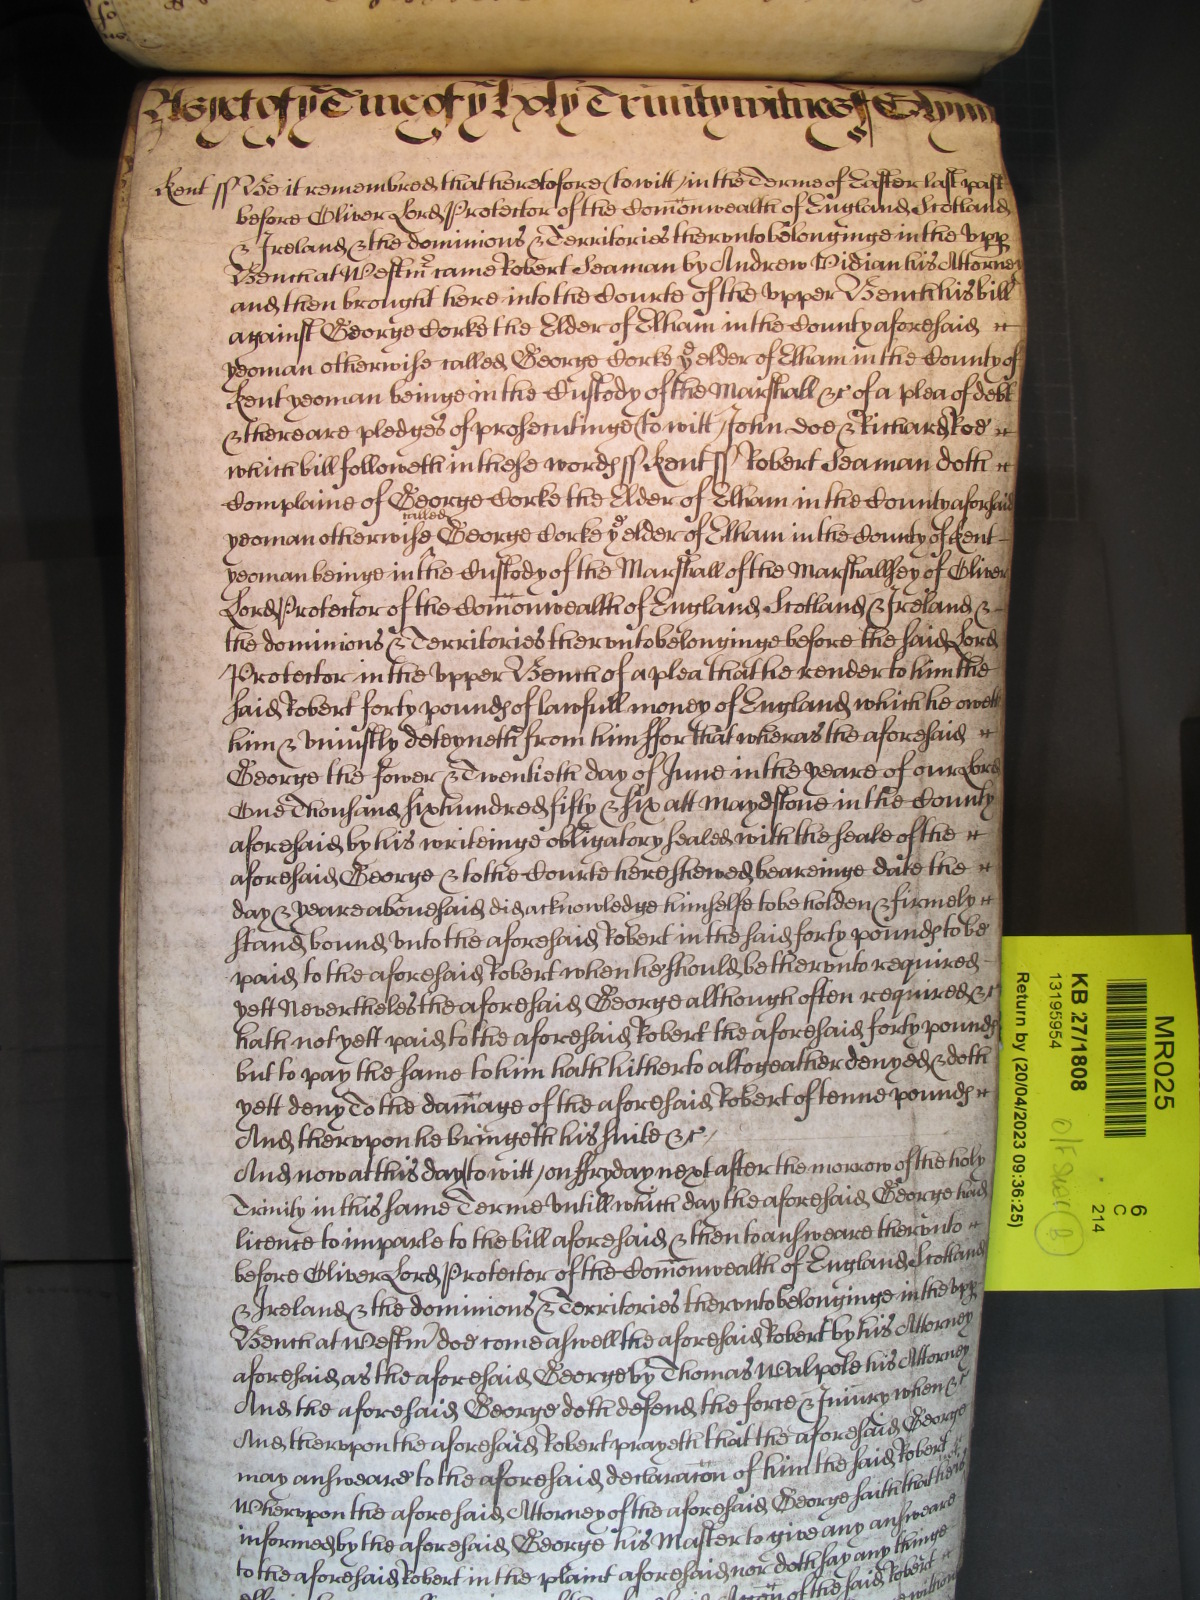 As yet of ye Tme of ye holy Trinity witnes
Kent ss Be it remembred that heretofore (to witt) in the Terme of Easter last past
before Oliver Lord Protector of the Comonwealth of England Scotland
& Ireland & the dominions & Territories therunto belonginge in the upp
Bench at Westmr came Robert Seaman by Andrew Vidian his Attorney
and then brought here into the Courte of the upper Bench his bill
against George Corke the Elder of Elham in the County aforesaid
yeoman otherwise called George Corke ye elder of Elham in the County of
Kent yeoman beinge in the Custody of the Marshall &c of a plea of debt
& there are pledges of prosecutinge (to witt) John Doe & Richard Roe
which bill followeth in these words ss Kent ss Robert Seaman doth
Complaine of George Corke the Elder of Elham in the County aforsaid
yeoman otherwise called George Corke ye elder of Elham in the County of Kent
yeoman beinge in the Custody of the Marshall of the Marshallsey of Oliver
Lord Protector of the Comonwealth of England Scotland & Ireland &
the dominions & Territories therunto belonginge before the said Lord
Protector in the upper Bench of a plea that he render to him the
said Robert forty pounds of lawfull money of England which he oweth
him & uniustly deteyneth from him ffor that wheras the aforesaid
George the fower & Twentieth day of June in the yeare of our Lord
One Thousand six hundred fifty & six att Maydstone in the County
aforesaid by his writeinge obligatory sealed with the seale of the
aforesaid George & to the Courte here shewed beareinge date the
day & yeare abovesaid did acknowledge himselfe to be holden & firmely
stand bound unto the aforesaid Robert in the said forty pounds to be
paid to the aforesaid Robert when he should be therunto required
yett Nevertheles the aforesaid George although often required &c
hath not yett paid to the aforesaid Robert the aforesaid forty pounds
but to pay the same to him hath hitherto altogeather denyed & doth
yett deny To the damage of the aforesaid Robert of tenne pounds
And therupon he bringeth his suite &c
And now at this day (to witt) on ffryday next after the morrow of the holy
Trinity in this same Terme untill which day the aforesaid George had
licence to imparle to the bill aforesaid & then to answeare therunto
before Oliver Lord Protector of the Comonwealth of England Scotland
& Ireland & the dominions & Territories therunto belonginge in the upp
Bench at Westm doe come aswell the aforesaid Robert by his Attorney
aforesaid as the aforesaid George by Thomas Walpole his Attorney
And the aforesaid George doth defend the force & Iniury when &c
And therupon the aforesaid Robert prayeth that the aforesaid George
may answeare to the aforesaid declaracon of him the said Robert
Wherupon the aforesaid Attorney of the aforesaid George saith that he is
informed by the aforesaid George his Master to give any answeare
to the aforesaid Robert in the plaint aforesaid nor doth say any thinge
of the said Robert
MR025
6
C
214
KB 27/1808
13195954
Return by (20/04/2023 09:36:25)
B